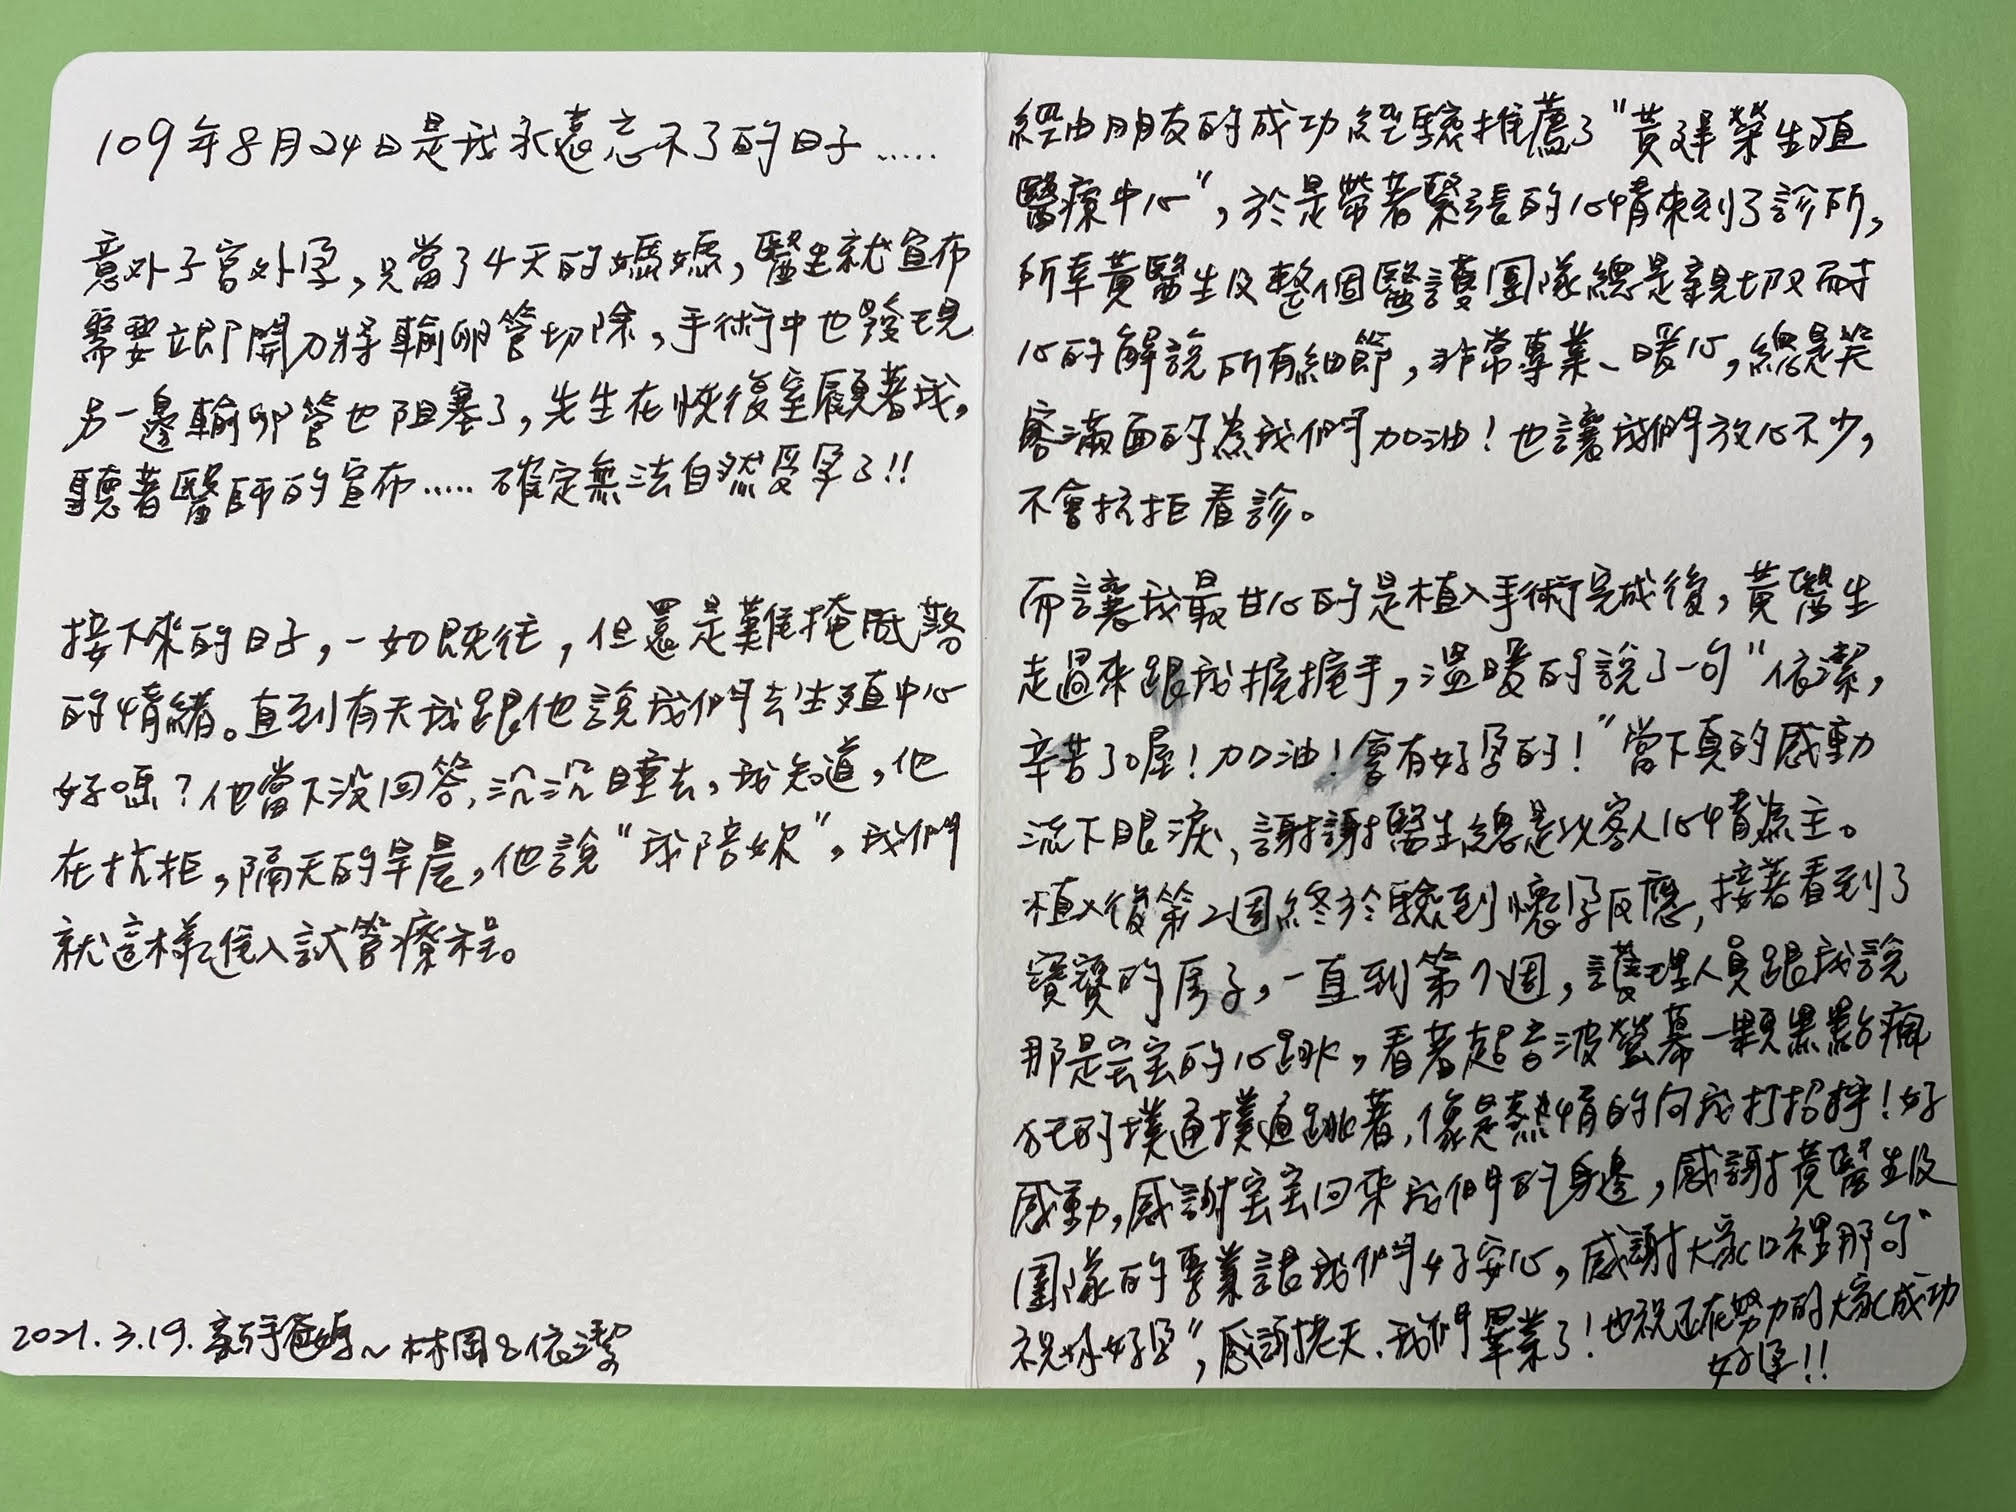 109年8月24日是我永遠忘不了的日子.....
意外子宮外孕,只當了4天的媽媽,醫生就宣布
需要立即開刀將輸卵管切除,手術中也發現
另一邊輸卵管也阻塞了,先生在恢復室顧著我,
聽著醫師的宣布.....確定無法自然受孕了!!
接下來的日子,一如既往,但還是難掩低落
的情緒。直到有天我跟他說我們去生殖中心
好嗎?他當下沒回答,沉沉睡去,我知道,他
在抗拒,隔天的早晨,他說"我陪妳",我們
就這樣進入試管療程。
2021.3.19.爸媽~林岡&依潔
經由朋友的成功經驗推薦了"黃建榮生殖
醫療中心",於是帶著緊張的心情來到了診所,
所幸黃醫生及整個醫護團隊總是親切又耐
心的解說所有細節,非常專業、暖心,總是笑
容滿面的為我們加油!也讓我們放心不少,
不會抗拒看診。
而讓我最甘心的是植入手術完成後,黃醫生
走過來跟我握握手,溫暖的說了一句"依潔,
辛苦了喔!加油!會有好孕的!"當下真的感動
流下眼淚,謝謝醫生總是以客人心情為主。
植入後第2週終於驗到懷孕反應,接著看到了
寶寶的房子,一直到第7週,護理人員跟我說
那是宝宝的心跳,看著超音波螢幕一顆黑點瘋
狂的撲通撲通跳著,像是熱情的向我打招呼!好
感動,感謝宝宝回來我們的身邊,感謝黃醫生及
團隊的專業讓我們好安心,感謝大家口裡那句"
祝妳好孕",感謝老天、我們畢業了!也祝還在努力的大家成功
好孕!!